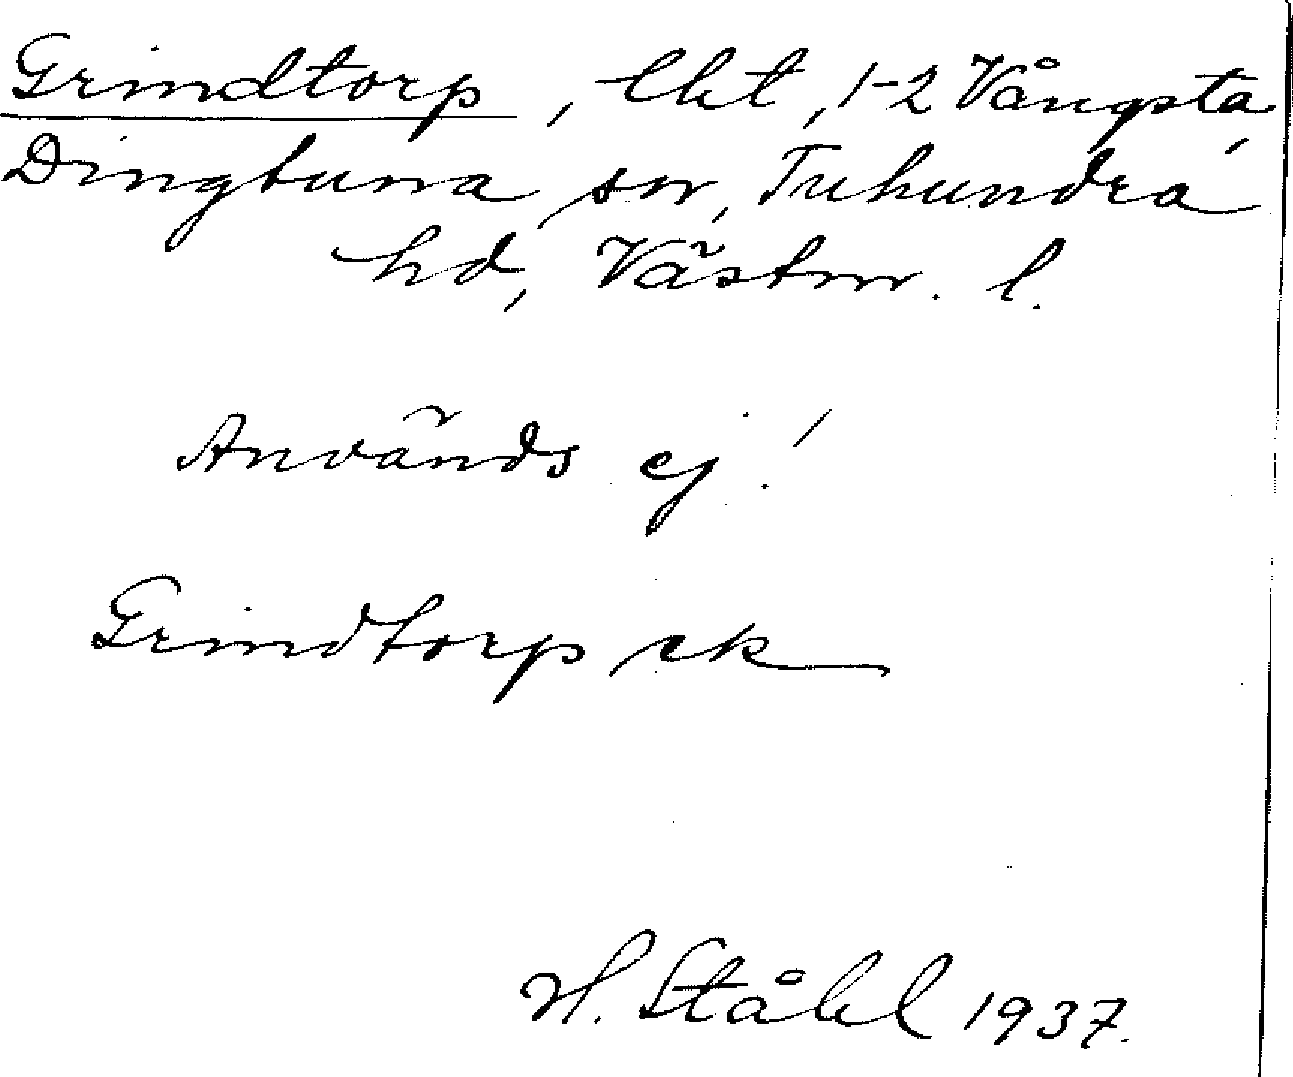 Grindtorp, lht, 1-2 Vångsta,
Dingtuna sn, Tuhundra
hd, Västm. l.
Används ej!
Grindtorp ek
H. Ståhl 1937.